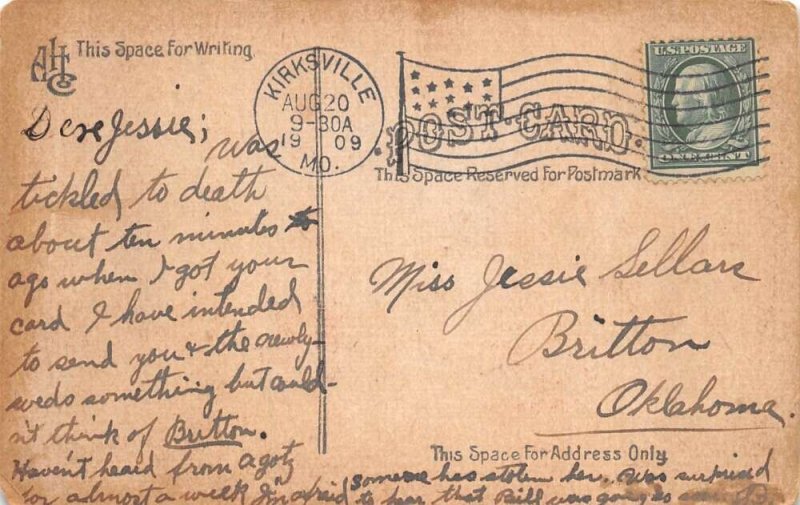 AHC Co
This Space For Writing
KIRKSVILLE
AUG 20
9-30A
19 09
MO.
U.S. POSTAGE
POST CARD
This Space Reserved For Postmark
Dere Jessie;
was
tickled to death
about ten minutes
ago when I got your
card I have intended
to send you & the newly-
weds something but could-
n't think of Britton.
Haven't heard from
for almost a week I'm afraid
someone has stolen her. Was surprised
to hear that Bill was going to
Miss Jessie Sellars
Britton
Oklahoma.
This Space For Address Only